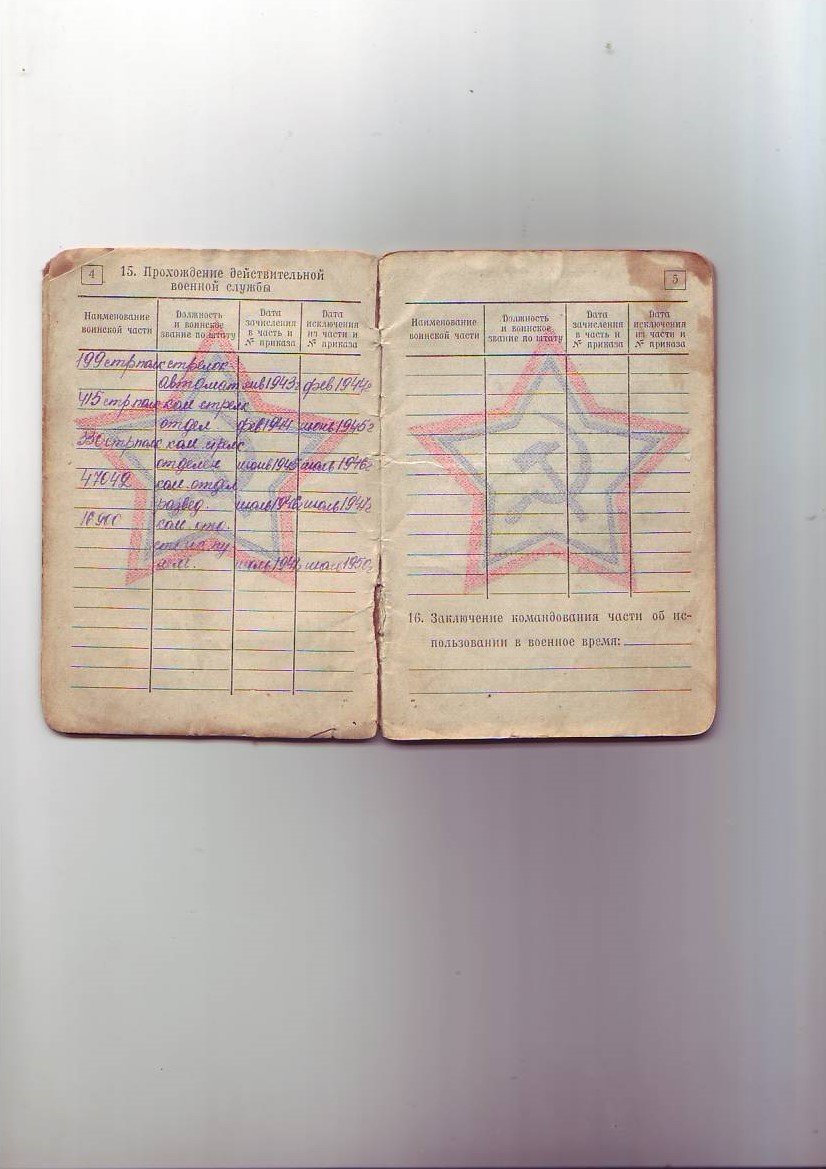 4
15. Прохождение действительной
военной службы
Наименование
воинской части
Должность
и воинское
звание по штату
Дата
зачисления
в часть и
№ приказа
Дата
исключения
из части и
№ приказа
199 стр полк стрелок
автомат янв 1943г фев 1944г
415 стр полк ком стрелк
отдел фев 1944 июнь 1945г
330 стр полк ком стрелк
отделен июнь 1945 июль 1946г
47042 ком. отдел
развед. июль 1946 июль 1947г
ком. отд.
1950г
5
Наименование
воинской части
Должность
и воинское
звание по штату
Дата
зачисления
в часть и
№ приказа
Дата
исключения
из части и
№ приказа
16. Заключение командования части об ис-
пользовании в военное время: